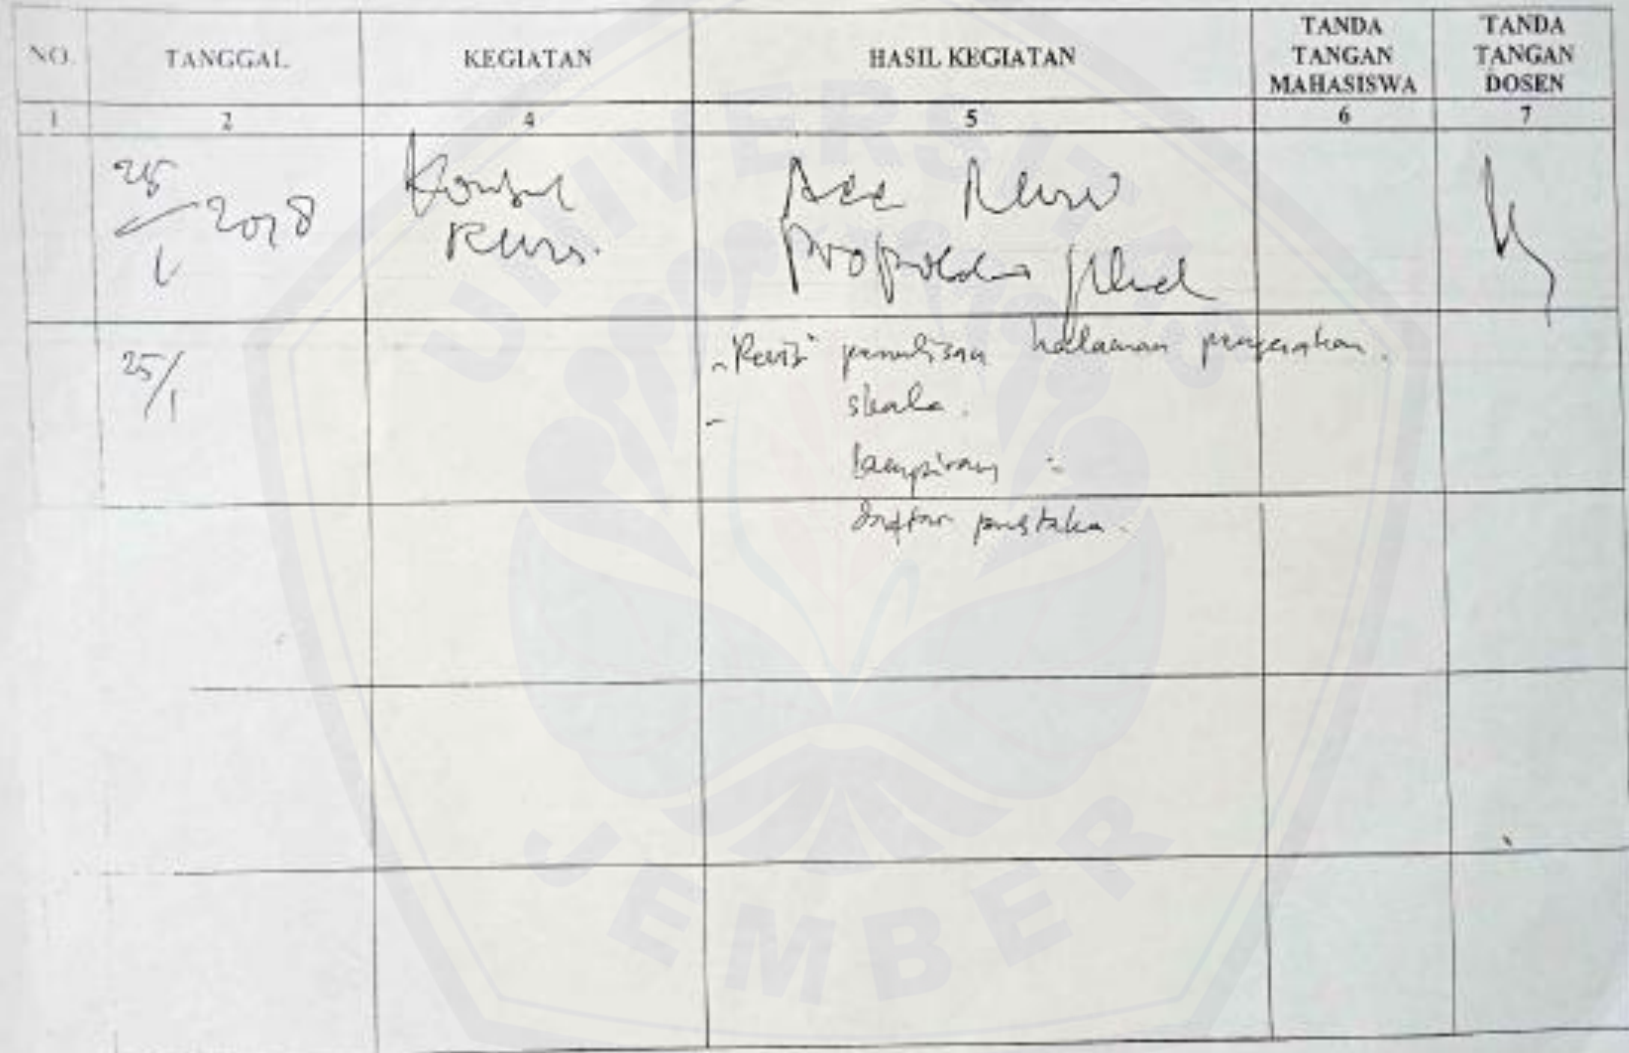 NO. TANGGAL KEGIATAN HASIL KEGIATAN TANDA TANGAN MAHASISWA TANDA TANGAN DOSEN
1 2 4 5 6 7
25/1 2018 Konsul Acc
Revisi
25/1 - Revisi penulisan halaman
- skala.
lampiran
daftar pustaka.
UNIVERSITAS
JEMBER